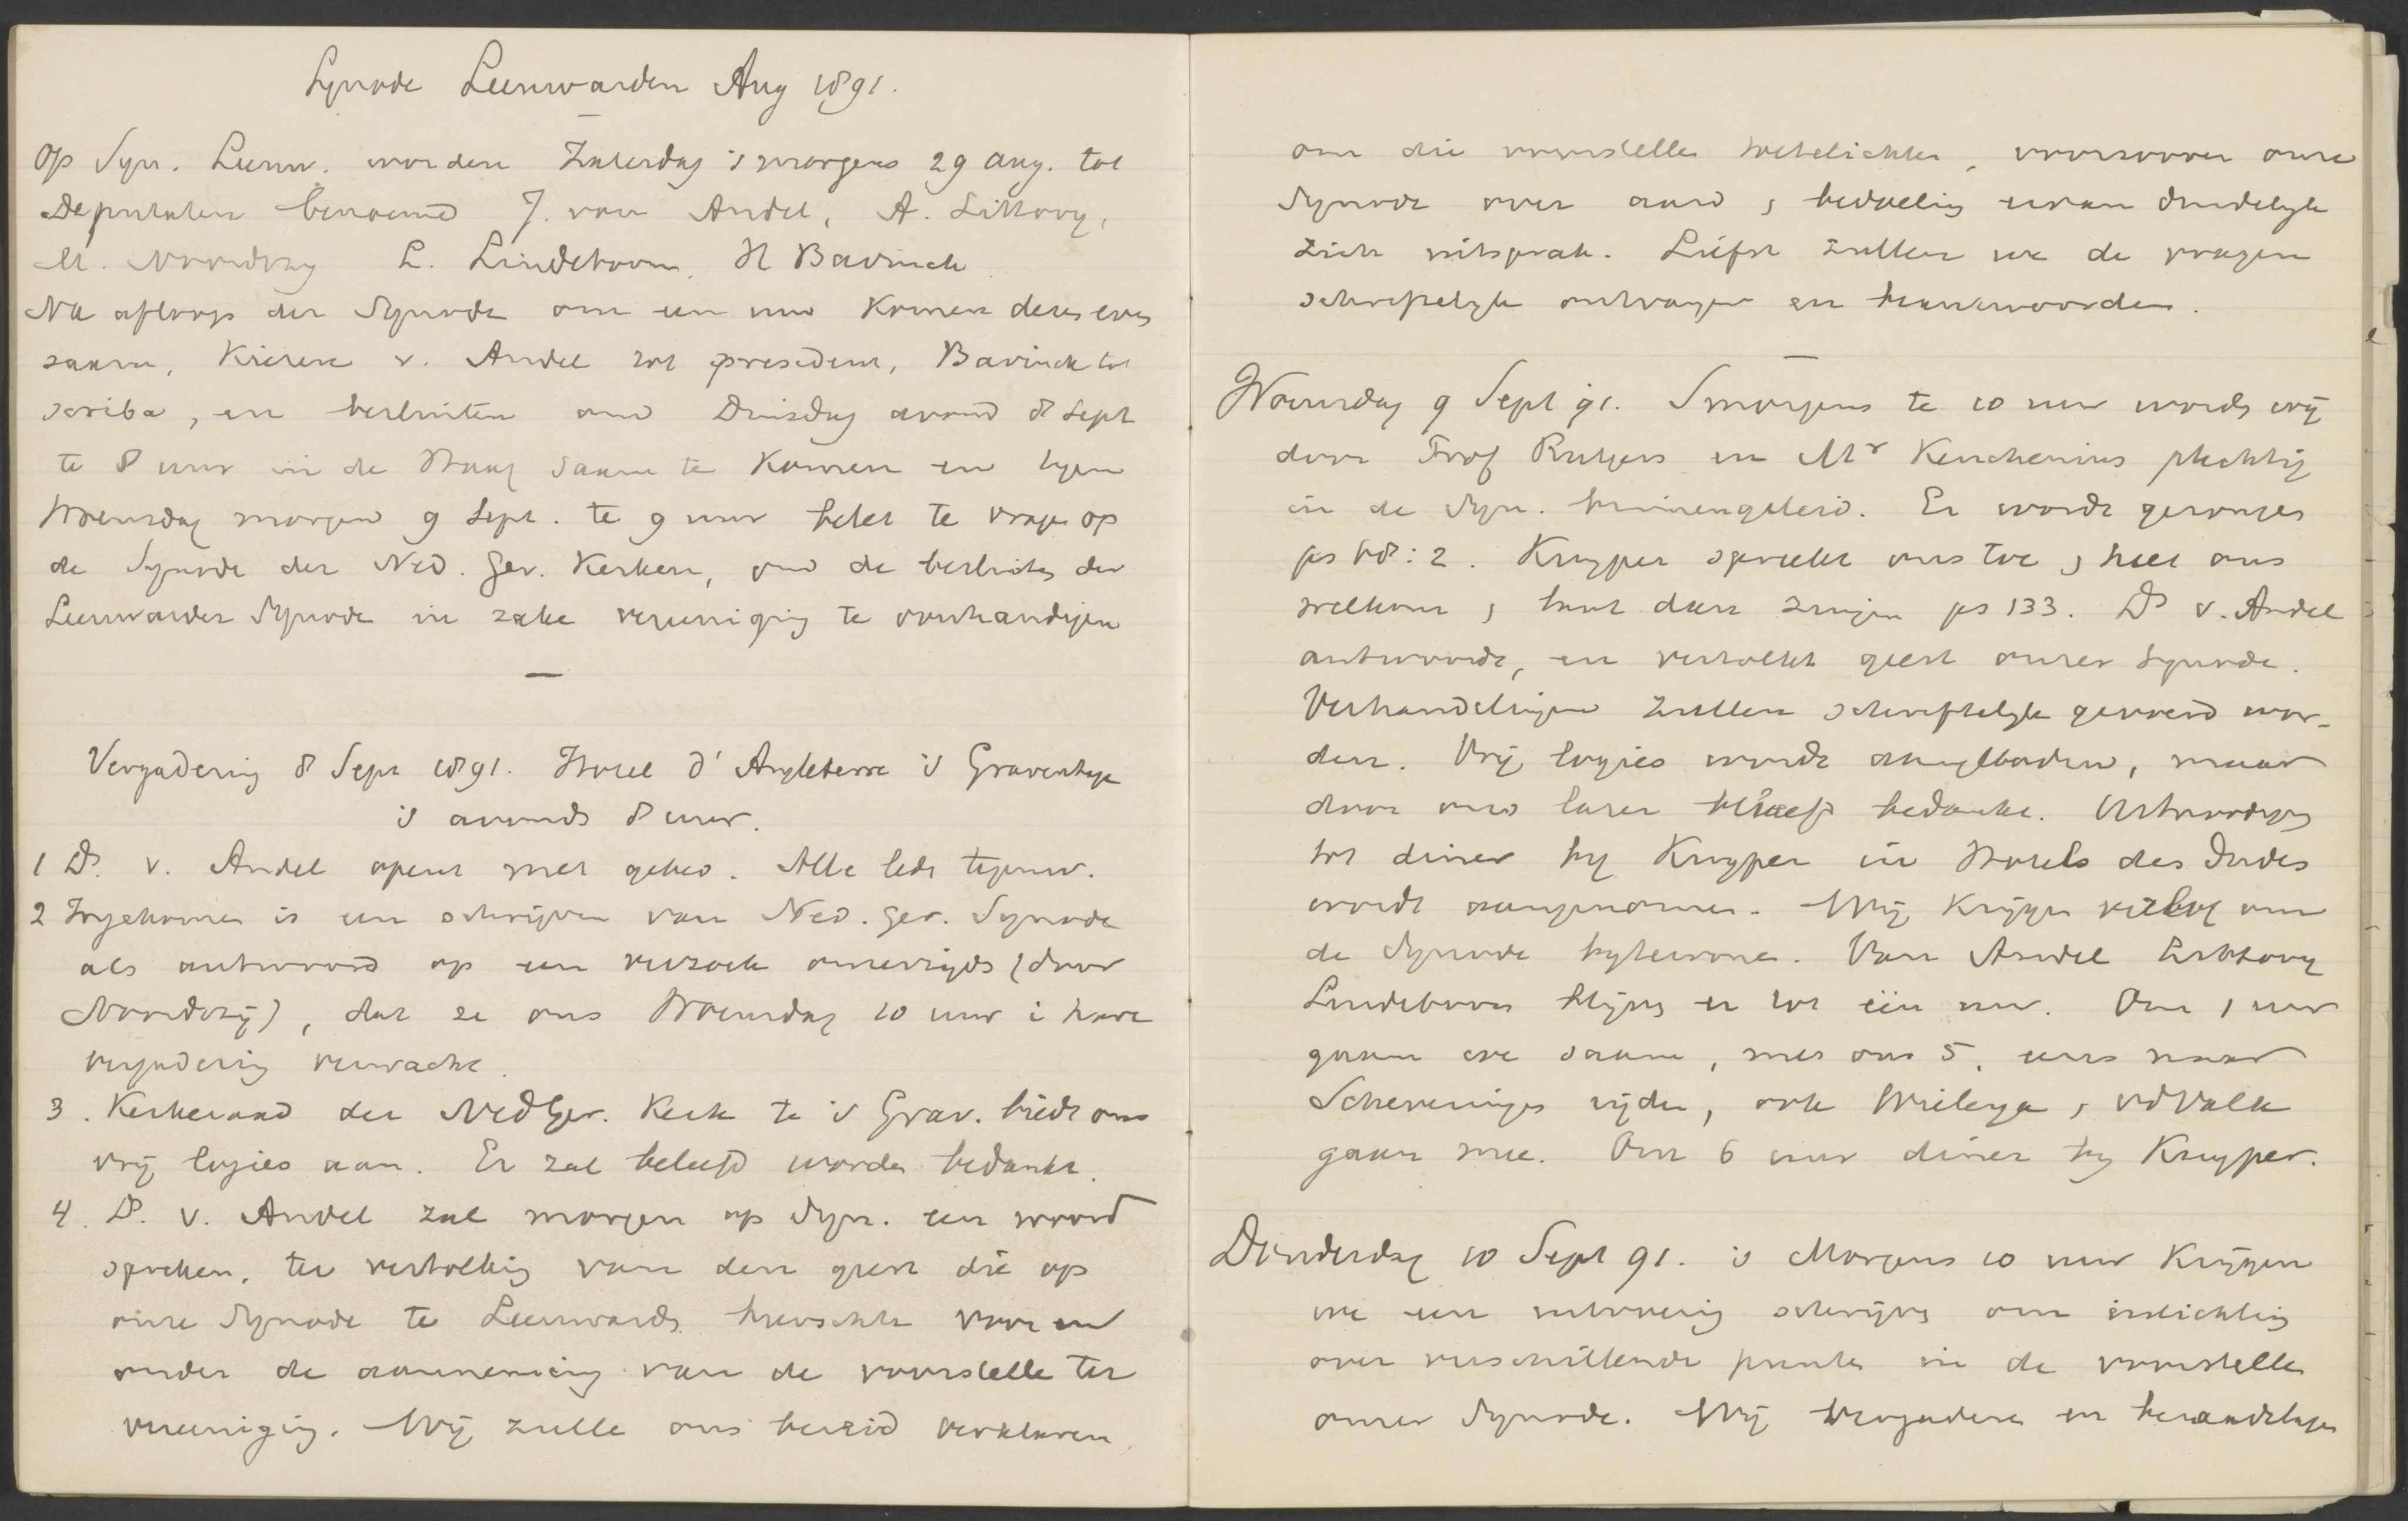 Synode Leeuwarden Aug 1891.
Op Syn. Leeuw. worden Zaterdag 's morgens 29 Aug. tot
Deputaten benoemd J. van Andel, A. Littooy,
M. Noordtzij L. Lindeboom, H Bavinck
Na afloop der Synode om een uur komen deze even
saam, kiezen v. Andel tot president, Bavinck tot
scriba, en besluiten om Dinsdag avond 8 Sept
te 8 uur in de Haag saam te komen en tegen
Woensdag morgen 9 Sept. te 9 uur belet te vragen op
de Synode der Ned. Ger. Kerken, om de besluiten der
Leeuwarder Synode in zake vereeniging te overhandigen
Vergadering 8 Sept 1891. Hotel d'Angleterre 's Gravenhage
's avonds 8 uur.
1 Ds. v. Andel opent met gebed. Alle leden tegenw.
2 Ingekomen is een schrijven van Ned. Ger. Synode
als antwoord op een verzoek onzerzijds (door
Noordtzij), dat ze ons Woensdag 10 uur in hare
vergadering verwacht.
3. Kerkeraad der Ned Ger. Kerk te 's Grav. biedt ons
vrij logies aan. Er zal beleefd worden bedankt.
4. Ds. v. Andel zal morgen op Syn. een woord
spreken, ter vertolking van den geest die op
onze Synode te Leeuwarden heerschte voor en
onder de aanneming van de voorstellen ter
vereeniging. Wij zullen ons bereid verklaren
om die voorstellen toetelichten, voorzoover onze
Synode over aard & bedoeling ervan duidelijk
zich uitsprak. Liefst zullen we de vragen
schriftelijk ontvangen en beantwoorden.
Woensdag 9 Sept 91. Smorgens te 10 uur worden wij
door Prof Rutgers en Mr Keuchenius plechtig
in de Syn. binnengeleid. Er wordt gezongen
ps 68:2. Kuyper spreekt ons toe & heet ons
welkom & laat dan zingen ps 133. Ds v. Andel
antwoordt, en vertolkt geest onzer Synode.
Verhandelingen zullen schriftelijk gevoerd wor-
den. Vrij logies wordt aangeboden, maar
door ons later beleefd bedankt. Uitnoodiging
tot diner bij Kuyper in Hotel des Indes
wordt aangenomen. Wij krijgen verlof om
de Synode bijtewonen. Van Andel Littooy
Lindeboom blijven er tot één uur. Om 1 uur
gaan we saam, met ons 5, eens naar
Scheveningen rijden, ook Wielenga & vdValk
gaan mee. Om 6 uur diner bij Kuyper.
Donderdag 10 Sept 91. 's Morgens 10 uur krijgen
we een uitvoerig schrijven om inlichting
over verschillende punten in de voorstellen
onzer Synode. Wij vergaderen en beraadslagen